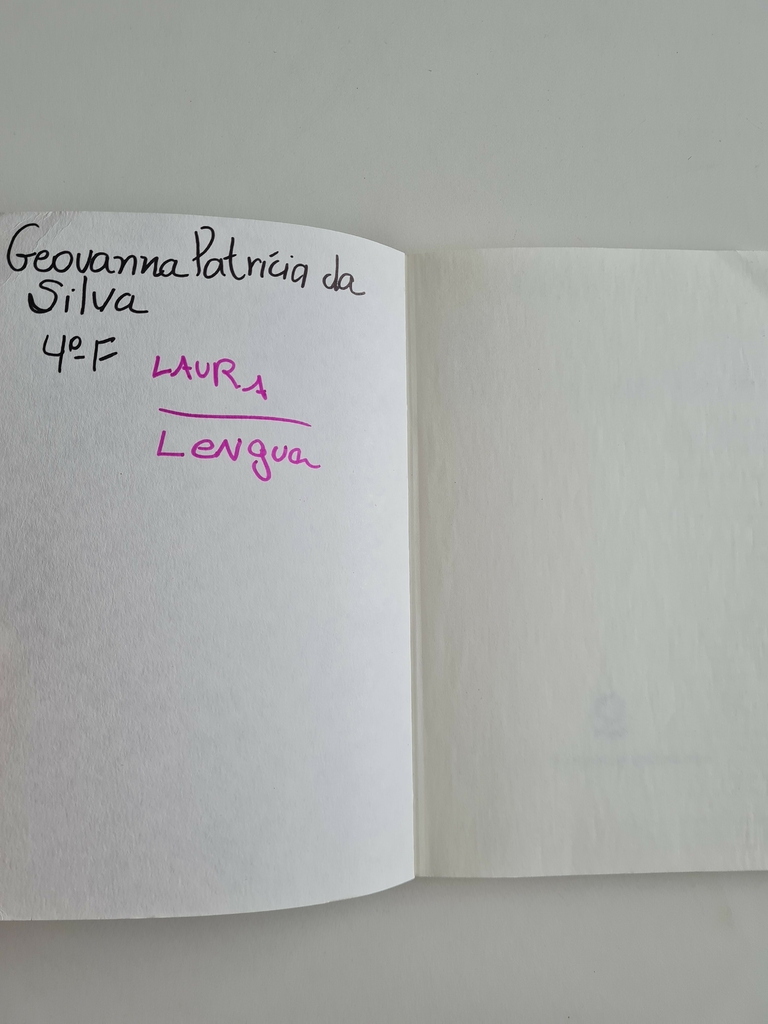 Geovanna Patrícia da
Silva
4º F
LAURA
Lengua